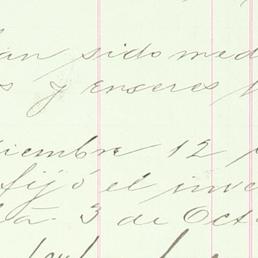 an sido med
s y enseres
iembre 12
fijó el inve
3 de Oct